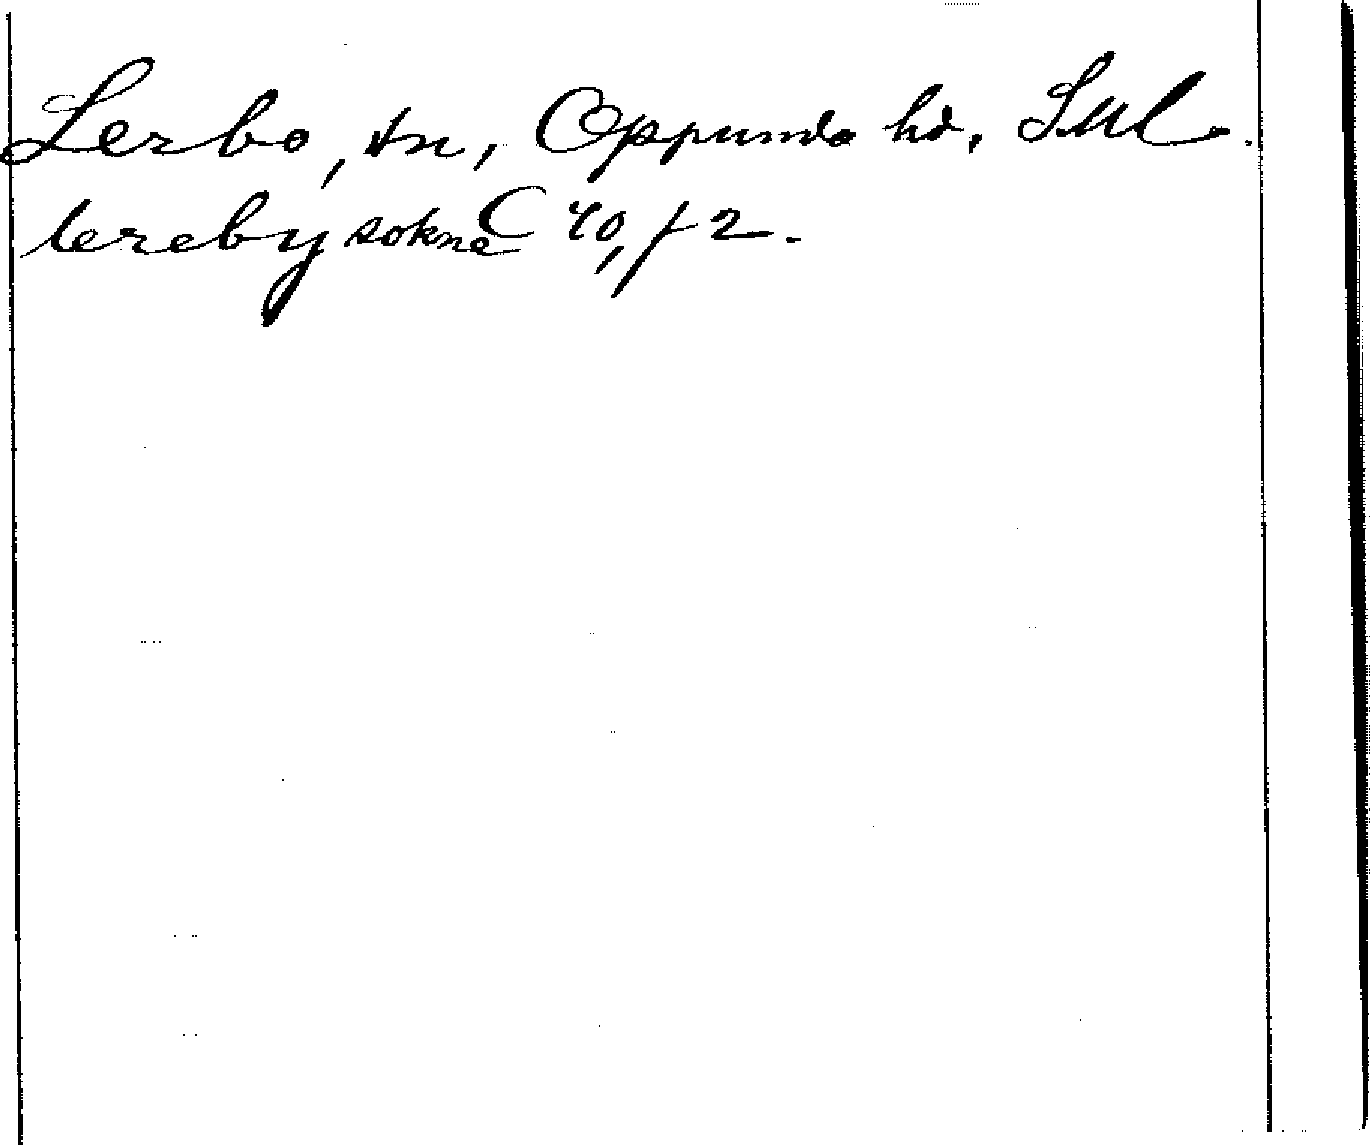 Lerbo, sn, Oppunda hd, Sul.
lereby sokne C 40, f 2.